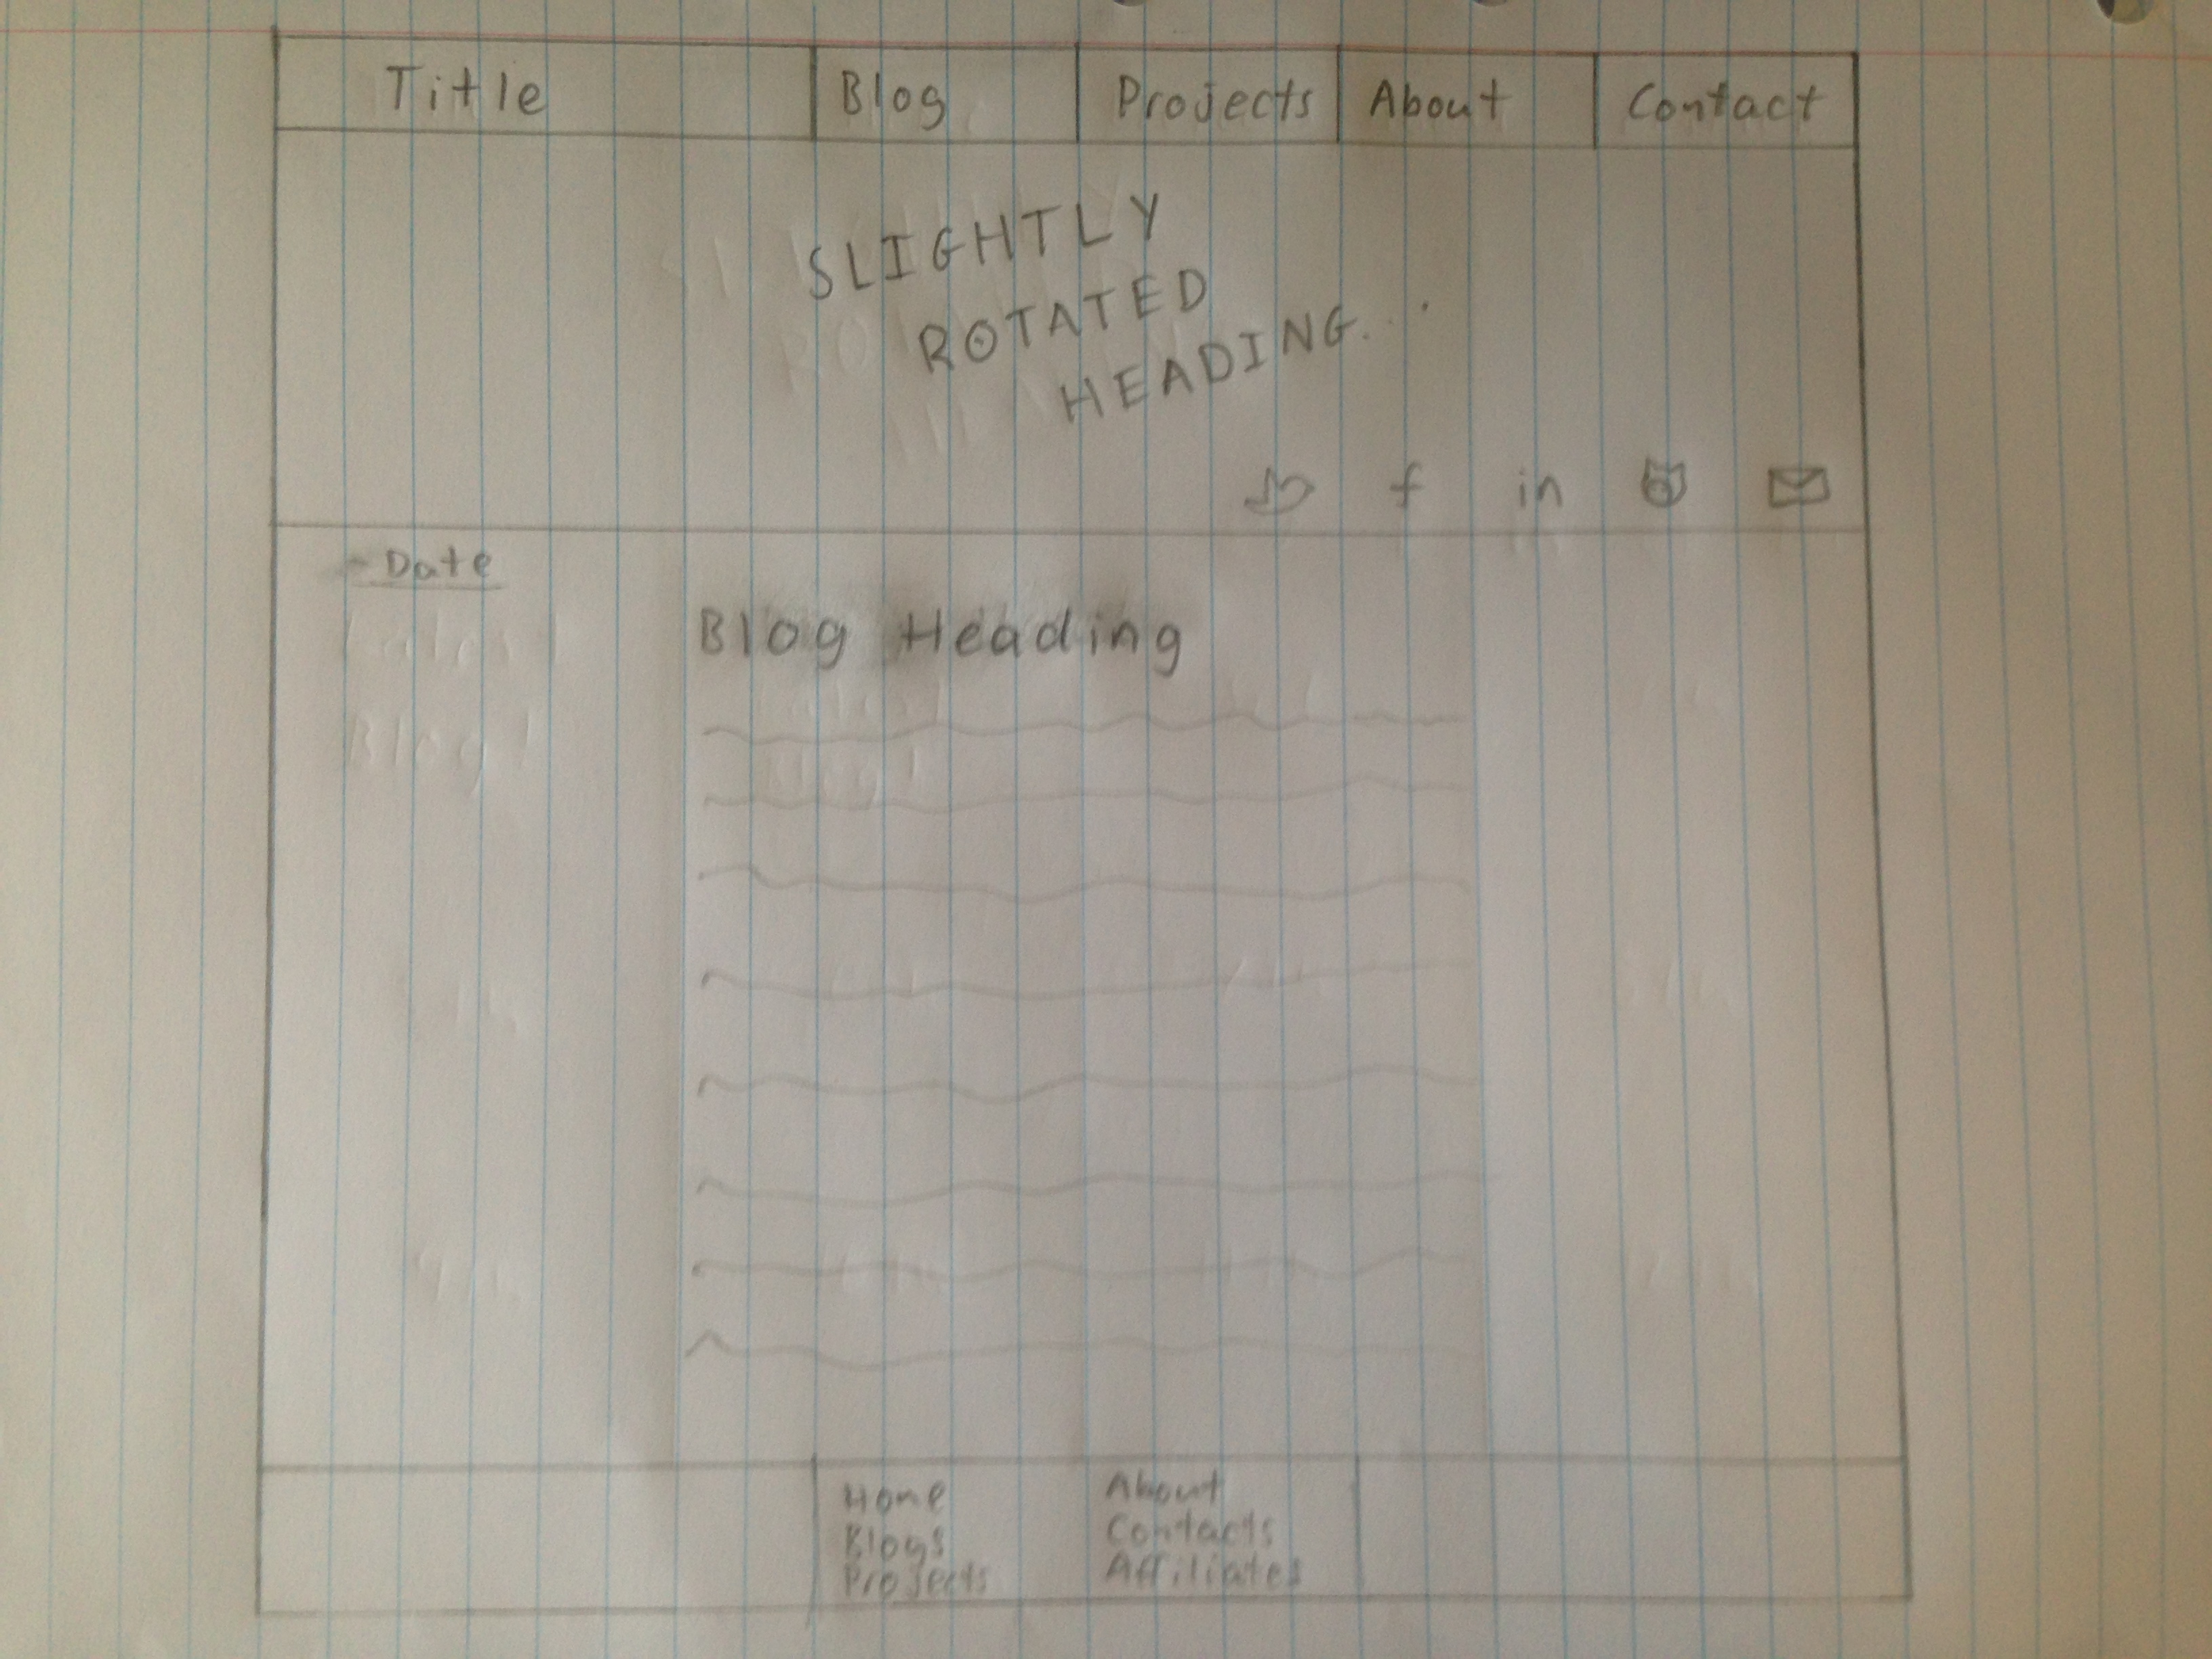 Title Blog Projects About Contact
SLIGHTLY
ROTATED
HEADING...
f in
Date
Blog Heading
Home About
Blogs Contacts
Projects Affiliates